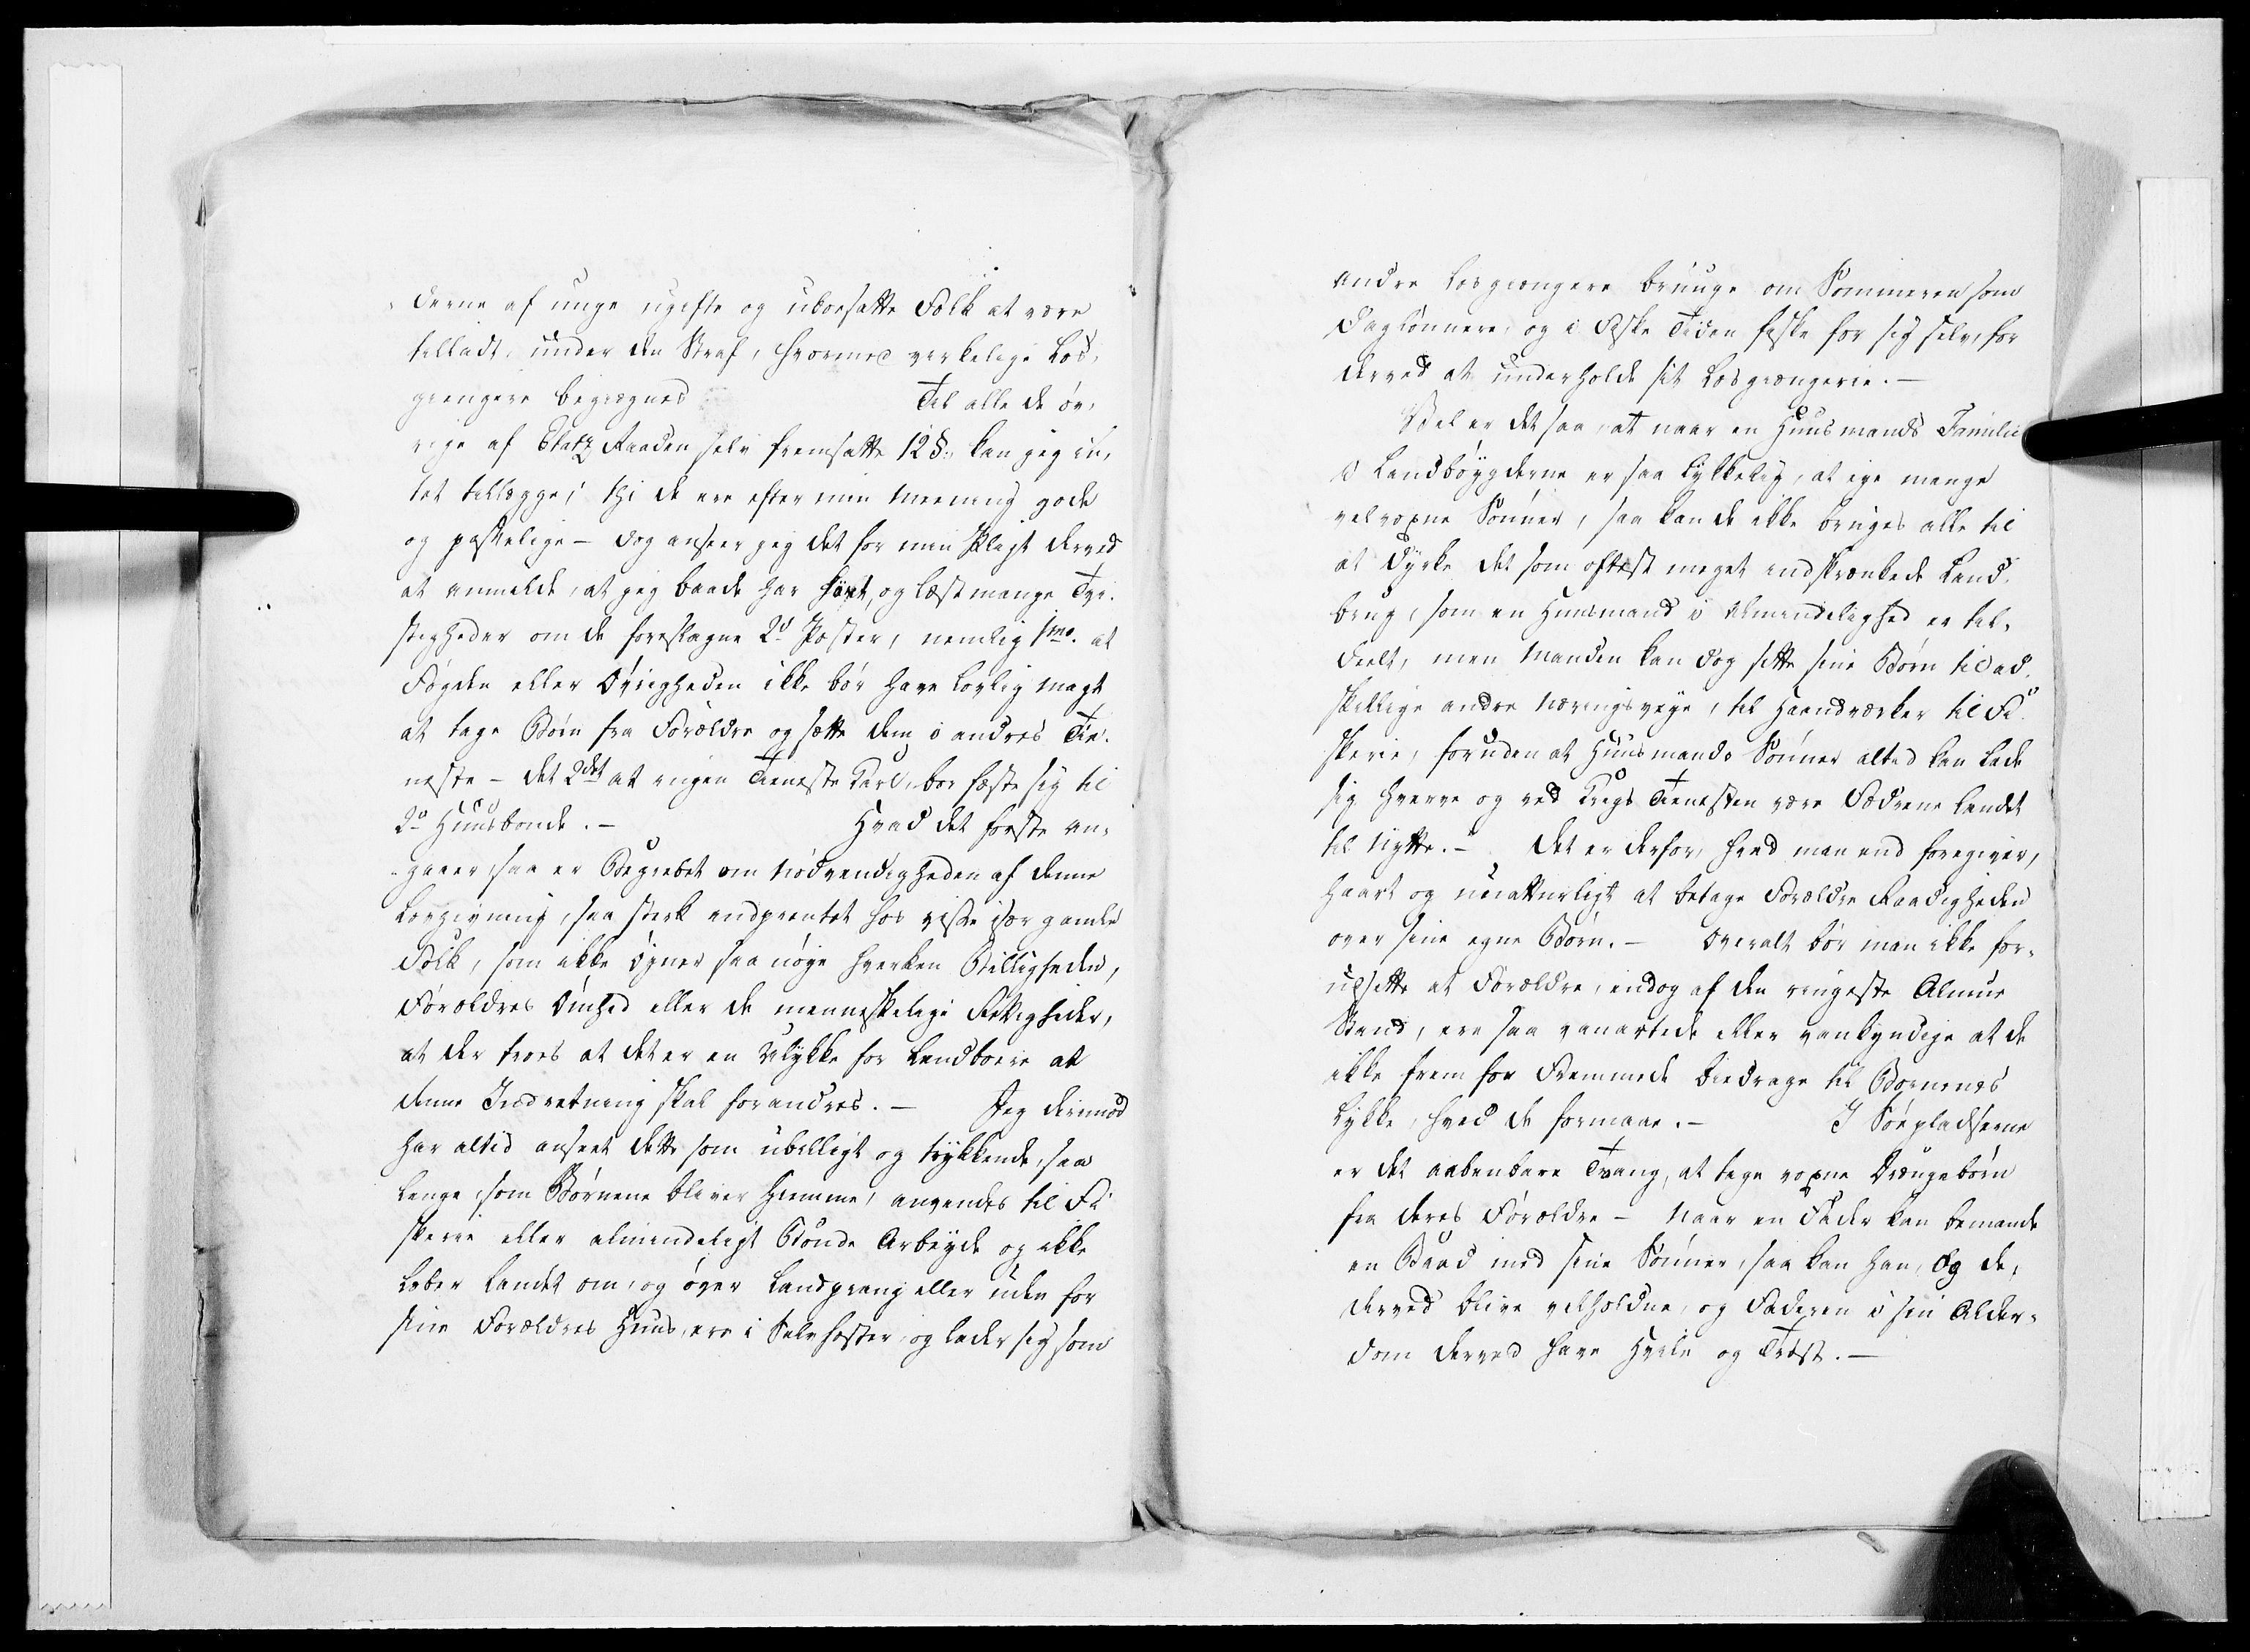 derne af unge ugifte og uboesatte Folk at være
tilladt, under den Straf, hvormed virkelige Løs,
giengere begiegnes Til alle de øv,
rige af Etatz Raaden selv fremsatte 12 §., kan jeg in,
tet tillægge; thi de ere efter min Meening gode
og passelige – dog anseer jeg det for min Pligt derved
at anmelde, at jeg baade har hørt, og læst mange Tvi,
stigheder om de foreslagne 2de Poster, nemlig 1mo. at
Fogden eller Øvrigheden ikke bør have lovlig Magt
at tage Børn fra Forældre og sætte dem i andres Tie,
neste – det 2det at ingen Tieneste Karl, bør fæste sig til
2de Huusbonde. – Hvad det første an,
gaaer, saa er Begrebet om Nødvendigheden af denne
Lovgivning, saa sterk indprentet hos visse især gamle
Folk, som ikke øyner saa nøye hverken Billigheden,
Forældres Ømhed eller de menneskelige Rettigheder,
at der troes at det er en Ulykke for Landboere at
denne Indretning skal forandres. – Jeg derimod
har altid anseet dette som ubilligt og trykkende, saa
lenge som Børnene bliver hiemme, anvendes til Fi
skerie eller almindeligt Bonde Arbeyde og ikke
løber Landet om, og øver Landprang eller uden for
sine Forældres Huus, ere i Selvhæster, og lader sig som
andre Losgiængere bruuge om Sommeren som
Daglønnere, og i Fiske Tiden fiske for sig selv, for
derved at underholde sit Løsgiængerie. –
Vel er det saa, at naar en Huusmands Familie
i Landbøygderne er saa lykkelig, at eye mange
velvoxne Sønner, saa kan de ikke bruges alle til
at dyrke det som oftest meget indskrænkede Land,
brug, som en Huusmand i Almindelighed er til,
deelt, men Manden kan dog sette sine Børn til ad,
skillige andre Næringsveye, til Haandværker til Fi,
skerie, foruden at Huusmands Sønner altid kan lade
sig hverve og ved Krigs Tienesten være Fædrene landet
til Nytte. – Det er derfor, hvad man end foregiver,
haart og unaturligt at betage Forældre Raadigheden
over sine egne Børn. – Overalt bør man ikke for,
udsette at Forældre, endog af den ringeste Almue
Stand, ere saa vanartede eller vankyndige at de
ikke frem for Fremmede bidrage til Børnenes
Lykke, hvad de formaae. – I Søepladserne
er det aabenbare Tvang, at tage voxne Drængebørn
fra deres Forældre – Naar en Fader kan bemande
en Baad med sine Sønner, saa kan han, og de,
derved blive velholdne, og Faderen i sin Alder,
dom derved have Hvile og Trøst. –